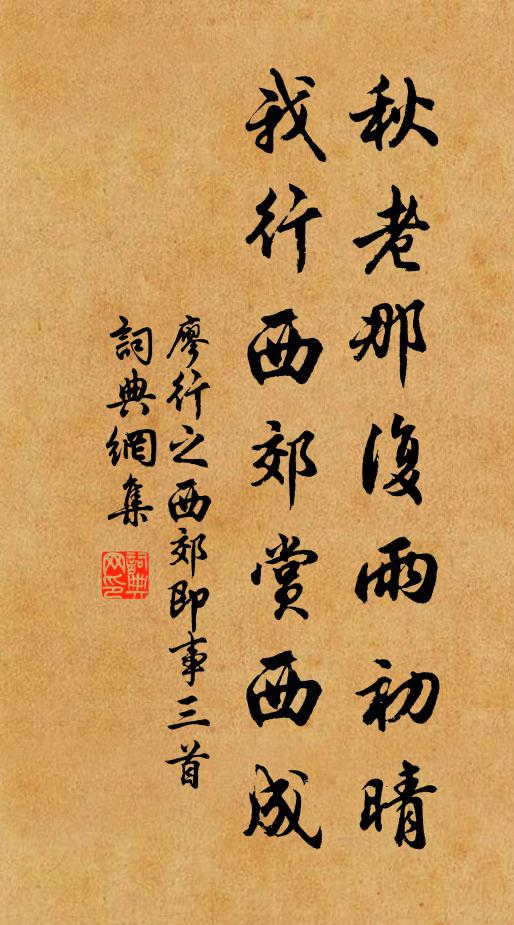 秋老那復雨初晴
我行西郊賞西成
廖行之西郊即事三首
詞典網集
詞典網印